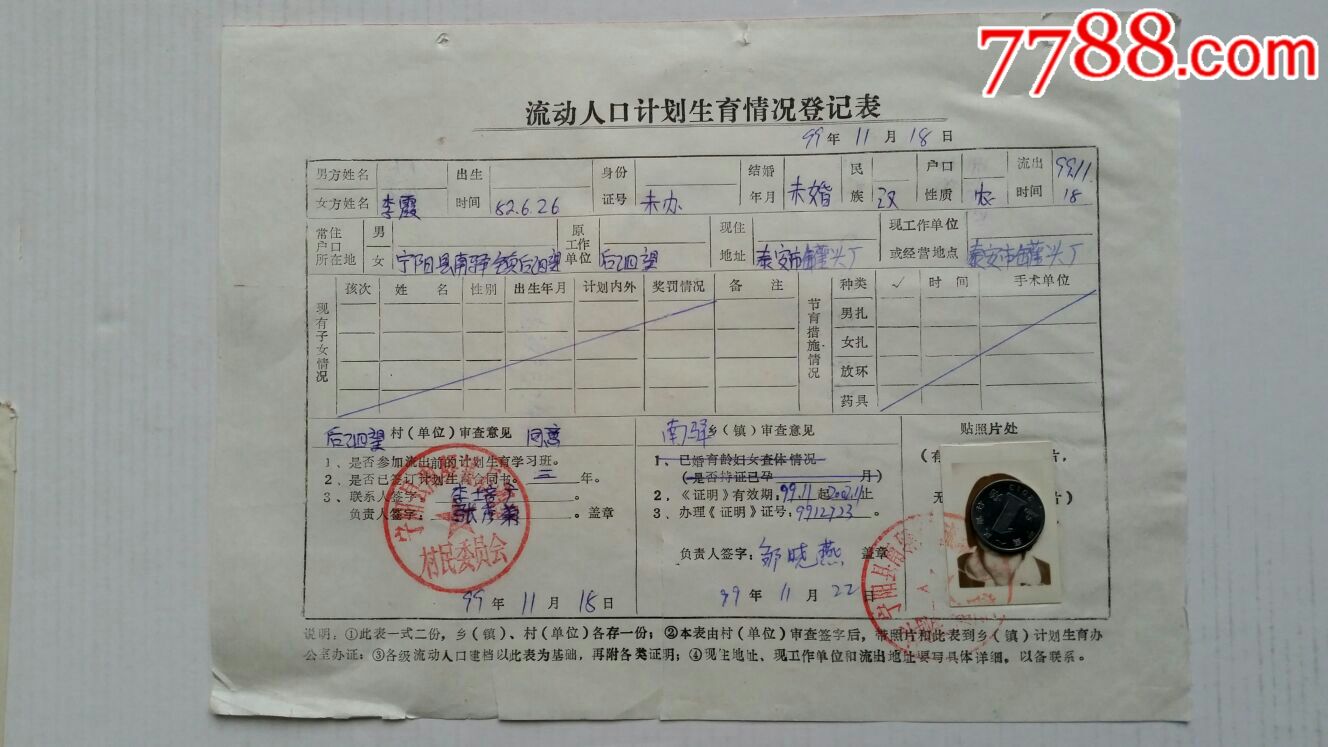 7788.com
流动人口计划生育情况登记表
99年 11 月 18 日
男方姓名 出生时间 身份证号 结婚年月 未婚 民族 汉 户口性质 农 流出时间 99.11.18
女方姓名 李霞 82.6.26 未办
常住户口所在地 男 原工作单位 现住地址 现工作单位或经营地点
女 宁阳县南驿镇后泗望 后泗望 泰安市罐头厂 泰安市罐头厂
现有子女情况 孩次 姓名 性别 出生年月 计划内外 奖罚情况 备注 节育措施情况 种类 ✓ 时间 手术单位
男扎
女扎
放环
药具
后泗望村(单位)审查意见 同意
1、是否参加流出前的计划生育学习班。
2、是否已签订计划生育合同书。三年。
3、联系人签字:。
负责人签字:。盖章
村民委员会
99年 11 月 18 日
南驿乡(镇)审查意见
1、已婚育龄妇女查体情况
(是否持证已孕 月)
2、《证明》有效期:99.11起2002.11止
3、办理《证明》证号:9912723。
负责人签字:邹晓燕 盖章
99年 11 月 22日
贴照片处
(有 片,
无 片)
宁阳县
说明:①此表一式二份,乡(镇)、村(单位)各存一份;②本表由村(单位)审查签字后,带照片和此表到乡(镇)计划生育办
公室办证;③各级流动人口建档以此表为基础,再附各类证明;④现住地址、现工作单位和流出地址要写具体详细,以备联系。